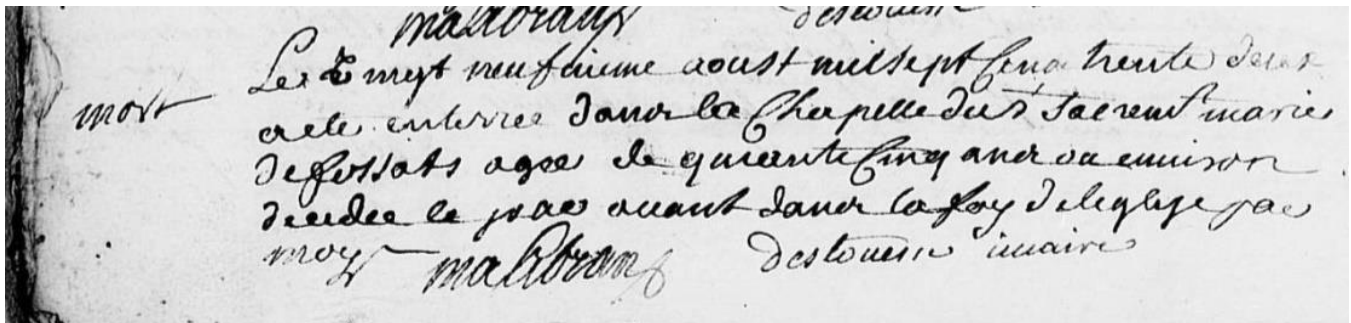 malibran destouesse
mort
Le vingt neufvieme aoust mil sept cens trente deux
a ete enterree dans la Chapelle du St Sacremt marie
de fossats agee de quarante cinq ans ou environ
decedee le jour avant dans la foy de leglise par
moy malibran destouesse vicaire